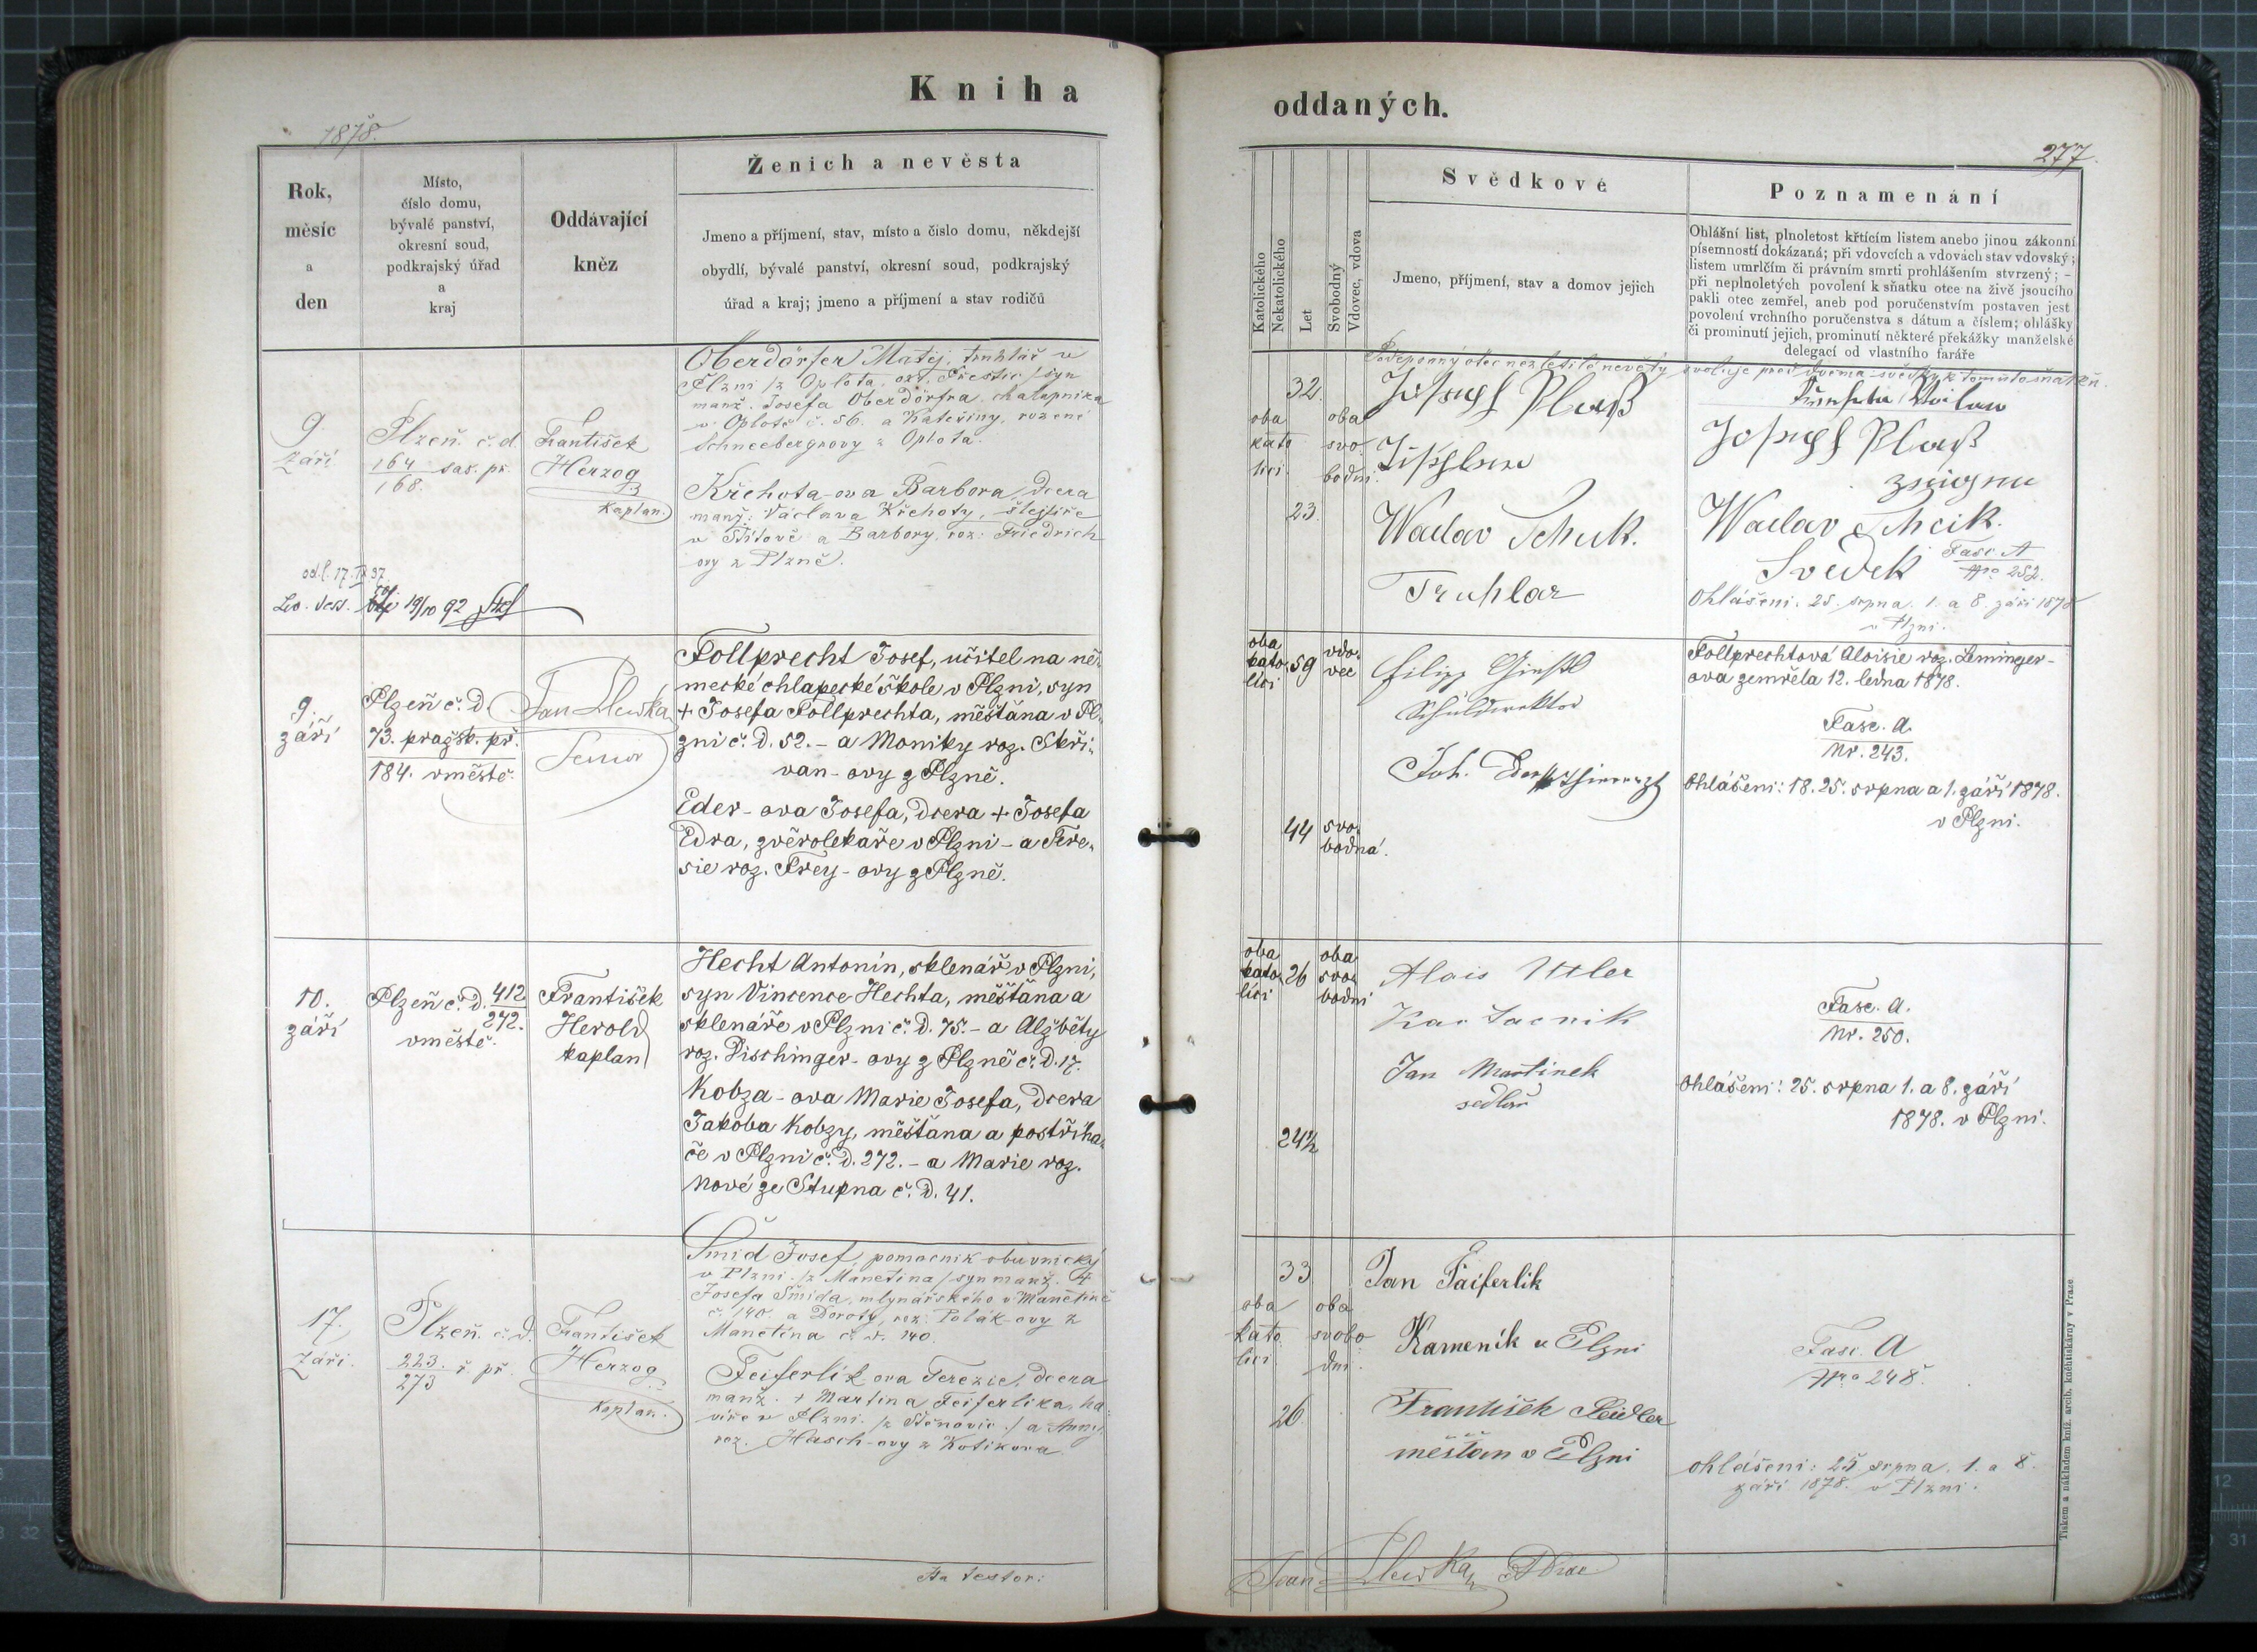 Kniha
oddaných.
1878.
277.
Rok,
měsíc
a
den
Místo,
číslo domu,
bývalé panství,
okresní soud,
podkrajský úřad
a
kraj
Oddávající
kněz
Ženich a nevěsta
Jmeno a příjmení, stav, místo a číslo domu, někdejší
obydlí, bývalé panství, okresní soud, podkrajský
úřad a kraj; jmeno a příjmení a stav rodičů
Katolického
Nekatolického
Let
Svobodný
Vdovec, vdova
Svědkové
Jmeno, příjmení, stav a domov jejich
Poznamenání
Ohlášní list, plnoletost křtícím listem anebo jinou zákonní
písemností dokázaná; při vdovcích a vdovách stav vdovský;
listem umrlčím či právním smrti prohlášením stvrzený; –
při neplnoletých povolení k sňatku otce na živě jsoucího
pakli otec zemřel, aneb pod poručenstvím postaven jest
povolení vrchního poručenstva s dátum a číslem; ohlášky
či prominutí jejich, prominutí některé překážky manželské
delegací od vlastního faráře
9.
Září
Plzeň č. d.
164 sas. př.
168.
František
Herzog
Kaplan.
Oberdörfer Matěj, truhlář v
Plzni /z Oplota, okr. Přestic/ syn
manž. Josefa Oberdörfra, chalupníka
v Oplotě č. 56. a Kateřiny, rozené
Schneebergrovy z Oplota.
Křehota-ova Barbora, dcera
manž. Václava Křehoty, šlejfíře
v Štítově a Barbory, roz. Friedrich
ovy z Plzně.
od. l. 17. IX. 37.
19/10 92
32.
oba
kato
lici
oba
svo
bodni.
23.
Podepsaný otec nezletilé nevěsty svoluje před dvěma svědky k tomuto sňatku.
Joseph Plaß
Tischler
Waclav
Truhlar
Joseph Plaß
Waclav
Svedek
Fasc. A
Nro 252.
Ohlášeni. 25. srpna. 1. a 8. září 1878
v Plzni.
9.
září
Plzeň č. d.
73. pražsk. př.
184. v městě.
Jan Slewka
Senior
Follprecht Josef, učitel na ně-
mecké chlapecké škole v Plzni, syn
+ Josefa Follprechta, měšťána v Pl-
zni č. d. 52. – a Moniky roz. Skři-
van-ovy z Plzně.
Eder-ova Josefa, dcera + Josefa
Edra, zvěrolekaře v Plzni – a Tere-
sie roz. Frey-ovy z Plzně.
oba
kato
lici
59
vdo-
vec
44
svo-
bodná.
Filipp
Schuldirektor
Joh.
Follprechtová Aloisie roz. Leminger-
ova zemřela 12. ledna 1878.
Fasc. A.
Nr. 243.
Ohlášeni: 18. 25. srpna a 1. září 1878.
v Plzni.
10.
září
Plzeň č. d. 412
272.
v městě.
František
Herold
kaplan
Hecht Antonín, sklenář v Plzni,
syn Vincence Hechta, měšťána a
sklenáře v Plzni č. d. 75. – a Alžběty
roz. Dischinger-ovy z Plzně č. d. 17.
Kobza-ova Marie Josefa, dcera
Jakoba Kobzy, měšťána a postřiha-
če v Plzni č. d. 272. – a Marie roz.
Nové ze Stupna č. d. 41.
oba
kato
lici
26
oba
svo
bodni
24½
Alois Utler
Jan Martinek
sedlař
Fasc. A.
Nr. 250.
Ohlášeni: 25. srpna 1. a 8. září
1878. v Plzni.
17.
Září.
Plzeň. č. d.
223. ř. př.
273
František
Herzog
Kaplan.
Šmid Josef, pomocnik obuvnický
v Plzni. /z Manetina/ syn manž. +
Josefa Šmida, mlynářského v Manetíně
č. 140. a Doroty, roz. Polák-ovy z
Manetína č. d. 140.
Feiferlik ova Terezie, dcera
manž. + Martina Feiferlika, ha-
víře v Plzni. /z Štěnovic./ a Anny
roz. Hasch-ovy z Kotikova
33
oba
kato
lici
oba
svobo
dni.
26.
Jan Faiferlik
Kameník v Plzni
František Seidler
měšťan v Plzni
Fasc. A
Nro 248.
Ohlášeni: 25 srpna. 1. a 8.
září 1878. v Plzni.
Ita testor:
Joan Slewka
Tiskem a nákladem kníž. arcib. knihtiskárny v Praze